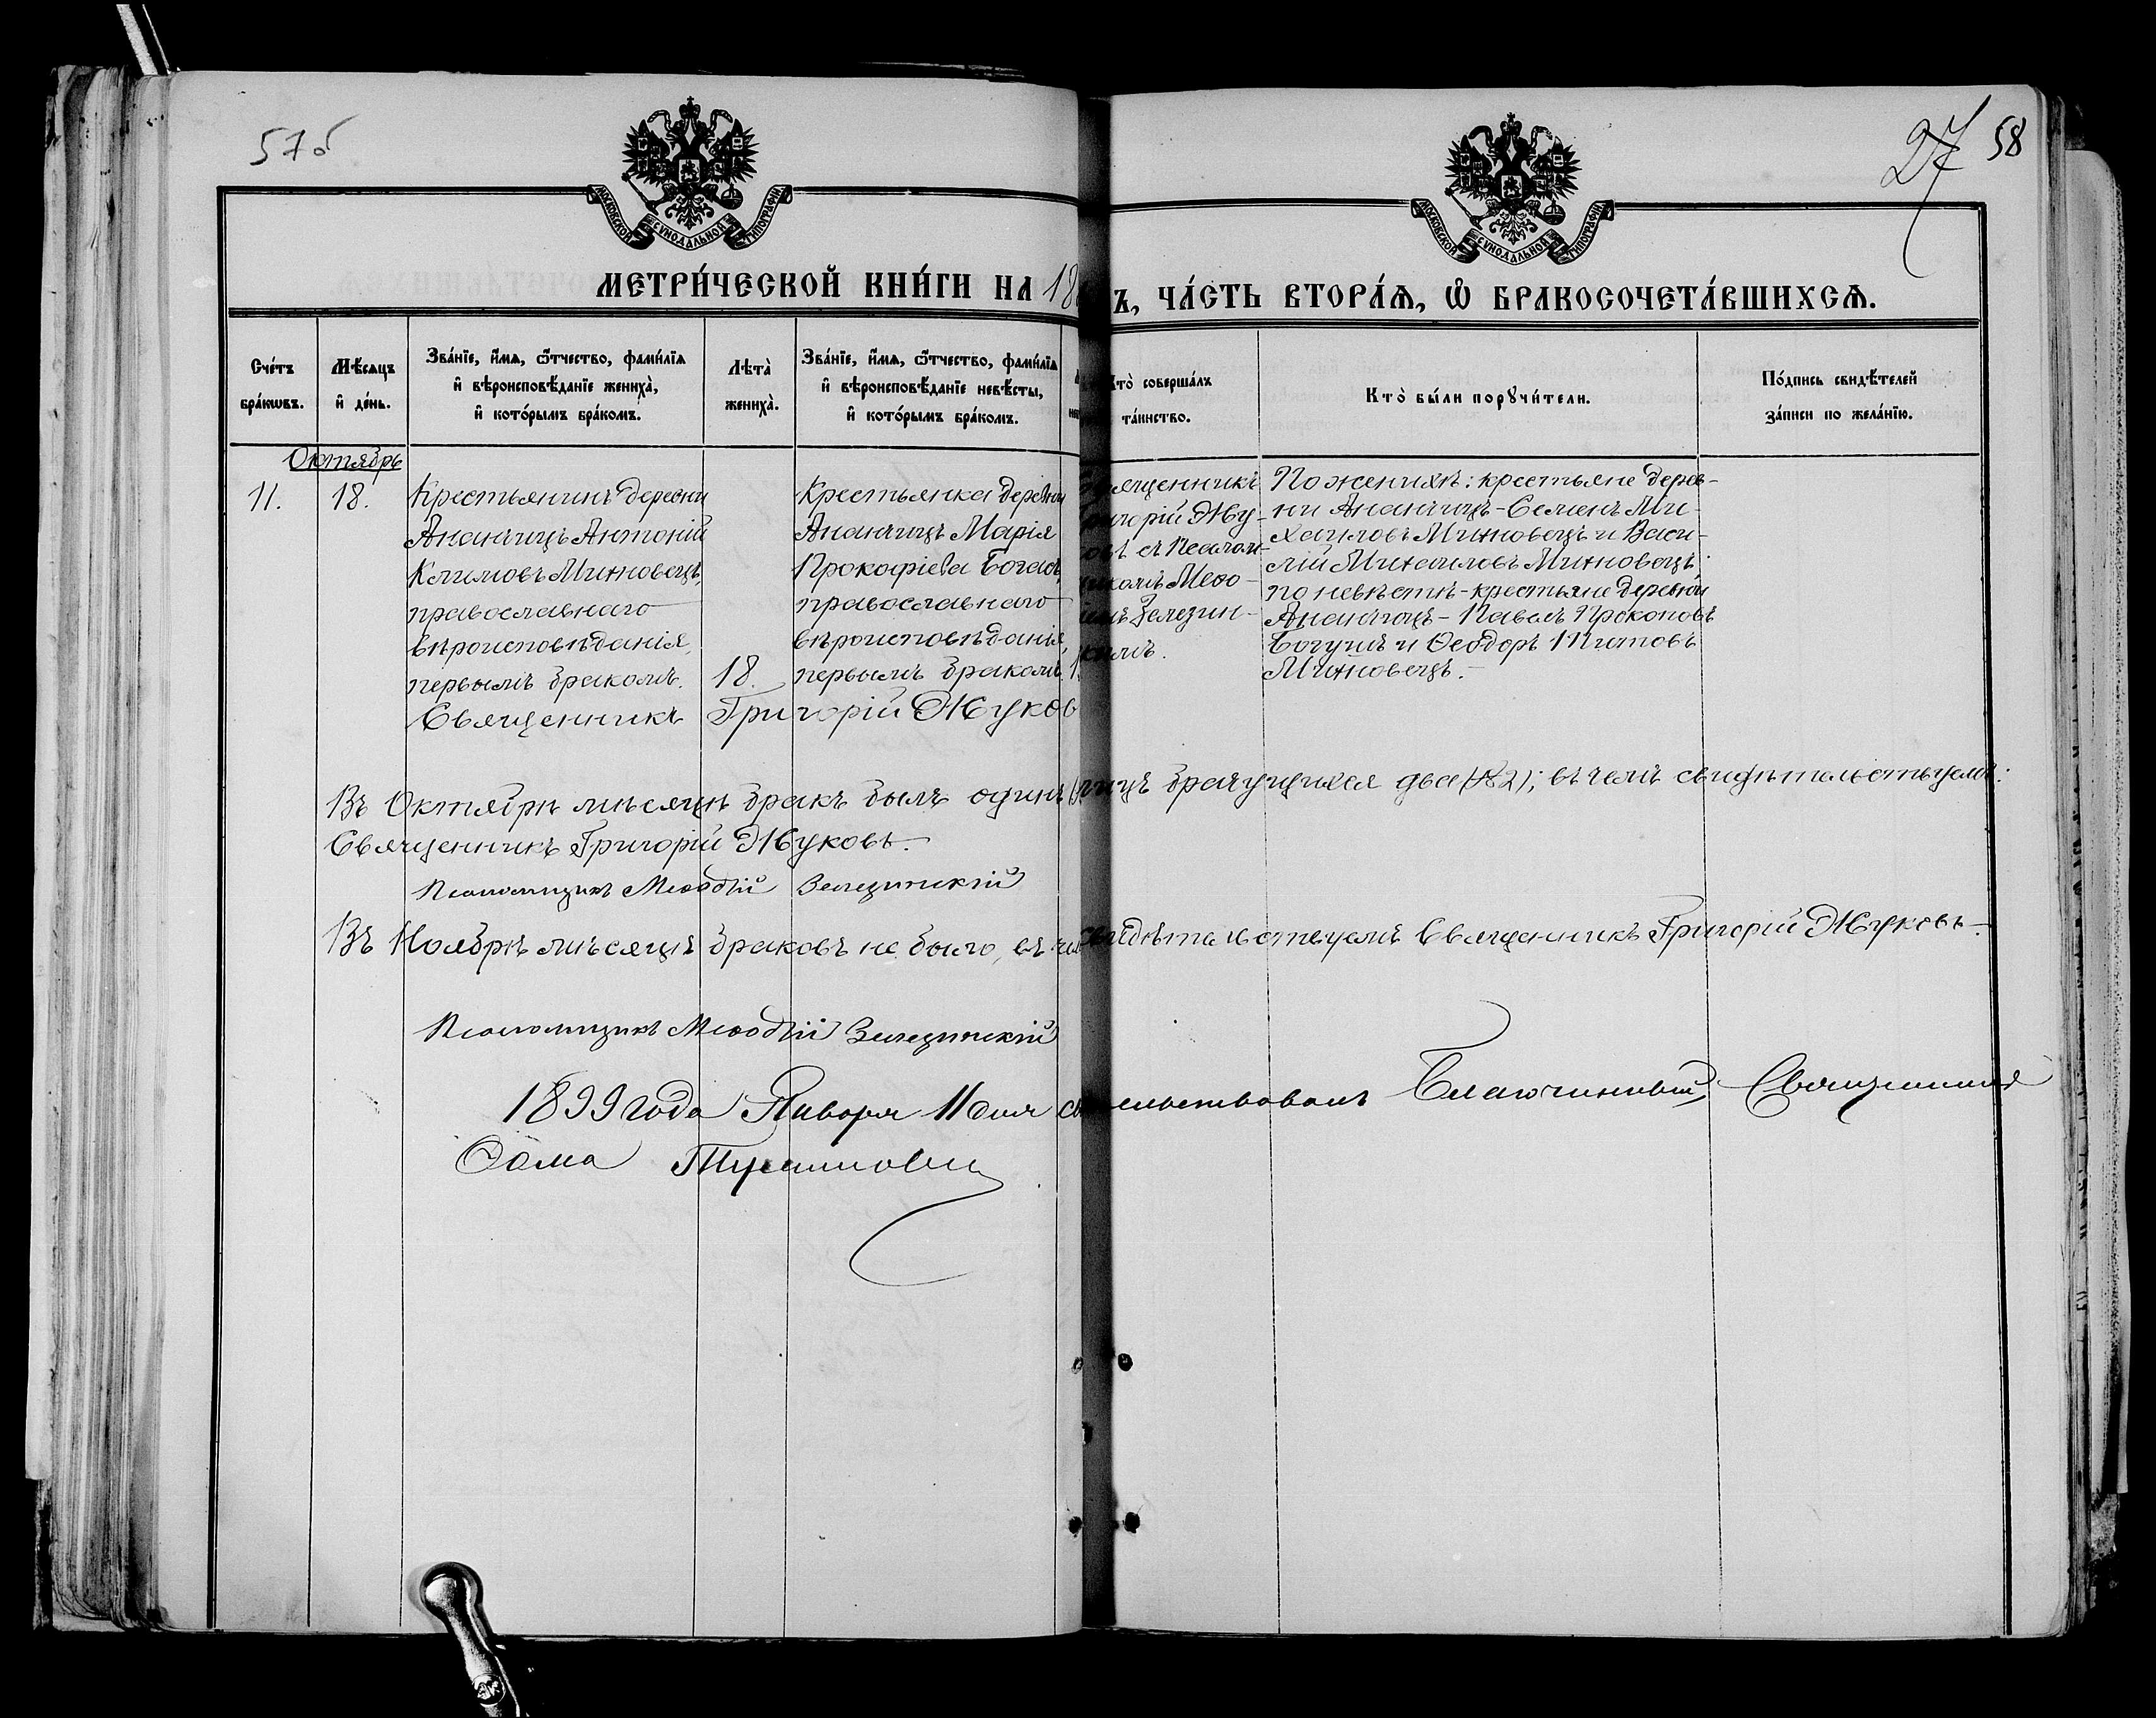 57б
27 58
МОСКОВСКОЙ СѴНОДАЛЬНОЙ ТИПОГРАФІИ
МОСКОВСКОЙ СѴНОДАЛЬНОЙ ТИПОГРАФІИ
МЕТРИ́ЧЕСКОЙ КНИ́ГИ НА 18
Ъ, ЧА́СТЬ ВТОРА́Ѧ, Ѡ҆ БРАКОСОЧЕТА́ВШИХСѦ.
Сче́тъ
бра́кѡвъ.
Мѣ́сѧцъ
и҆ де́нь.
Зва́нїе, и҆́мѧ, ѻ҆́тчество, фами́лїѧ
и҆ вѣроисповѣ́данїе жениха̀,
и҆ кото́рымъ бра́комъ.
Лѣта̀
жениха̀.
Зва́нїе, и҆́мѧ, ѻ҆́тчество, фами́лїѧ
и҆ вѣроисповѣ́данїе невѣ́сты,
и҆ кото́рымъ бра́комъ.
то̀ соверша́лъ
та́инство.
Кто̀ бы́ли порꙋчи́тели.
По́дпись свидѣ́телей
за́писи по жела́нїю.
Октябрь
11.
18.
Крестьянинъ деревни
Ананчицъ Антоній
Климовъ Михновецъ,
православнаго
вѣроисповѣданія,
первымъ бракомъ.
18.
Крестьянка деревни
Ананчицъ Марія
Прокофіева
православнаго
вѣроисповѣданія,
первымъ бракомъ.
ященникъ
игорій Жу-
овъ съ Псалом-
икомъ Меѳо-
іемъ Зелезин-
кимъ.
По женихѣ: крестьяне дерев-
ни Ананчицъ - Семенъ Ми-
хаиловъ Михновецъ и Васи-
лій Михаиловъ Михновецъ;
по невѣстѣ - крестьяне деревни
Ананчицъ - Павелъ Прокоповъ
и Ѳеодоръ Титовъ
Михновецъ. -
Священникъ Григорій Жуков
Въ Октябрѣ мѣсяцѣ бракъ былъ одинъ лицъ брачущихся два (№2); въ чемъ свидѣтельствуемъ:
Священникъ Григорій Жуковъ.
Псаломщикъ Меѳодій Зелезинскій
Въ Ноябрѣ мѣсяцѣ браковъ не было, въ че свидѣтельствуемъ Священникъ Григорій Жуковъ.
Псаломщикъ Меѳодій Зелезинскій
1899 года Января 11 дня св ельствовалъ Благочинный, Священникъ
Ѳома